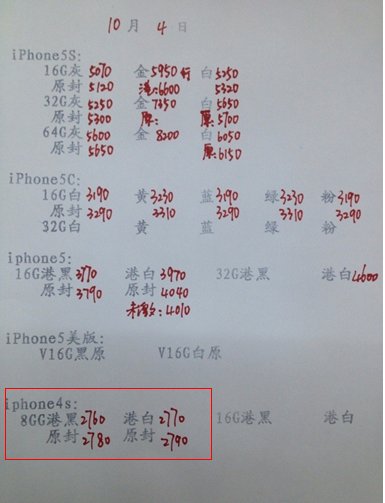 10月 4日
iPhone5S:
16G灰5070 金5950 白5250
原封5120 港:6600 5320
32G灰5250 金7450 白5650
原封5300 原: 原:5700
64G灰5600 金8200 白6050
原封5650 原:6150
iPhone5C:
16G白3190 黄3230 蓝3190 绿3230 粉3190
原封3290 3310 3290 3310 3290
32G白 黄 蓝 绿 粉
iphone5:
16G港黑3770 港白3970 32G港黑 港白4600
原封3790 原封4040
未激:4010
iPhone5美版:
V16G黑原 V16G白原
iphone4s:
8GG港黑2760 港白2770 16G港黑 港白
原封2780 原封2790